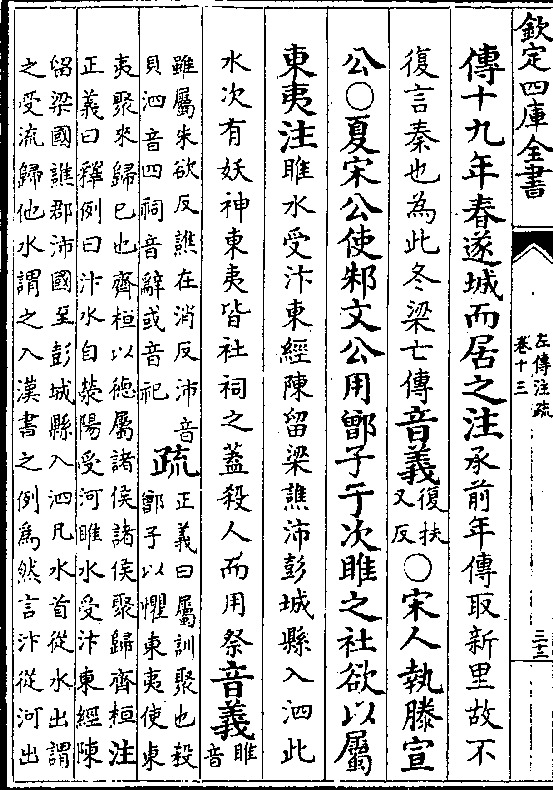 欽定四庫全書
左傳注疏
卷十三
三十三
傳十九年春遂城而居之注承前年傳取新里故不
復言秦也為此冬梁亡傳音義復扶
又反○宋人執滕宣
公○夏宋公使邾文公用鄫子于次睢之社欲以屬
東夷注睢水受汴東經陳留梁譙沛彭城縣入泗此
水次有妖神東夷皆社祠之蓋殺人而用祭音義睢
音
雖屬朱欲反譙在消反沛音
貝泗音四祠音辭或音祀
疏正義曰屬訓聚也殺
鄫子以懼東夷使東
夷聚來歸已也齊桓以德屬諸侯諸侯聚歸齊桓注
正義曰釋例曰汴水自滎陽受河睢水受汴東經陳
留梁國譙郡沛國至彭城縣入泗凡水首從水出謂
之受流歸他水謂之入漢書之例為然言汴從河出